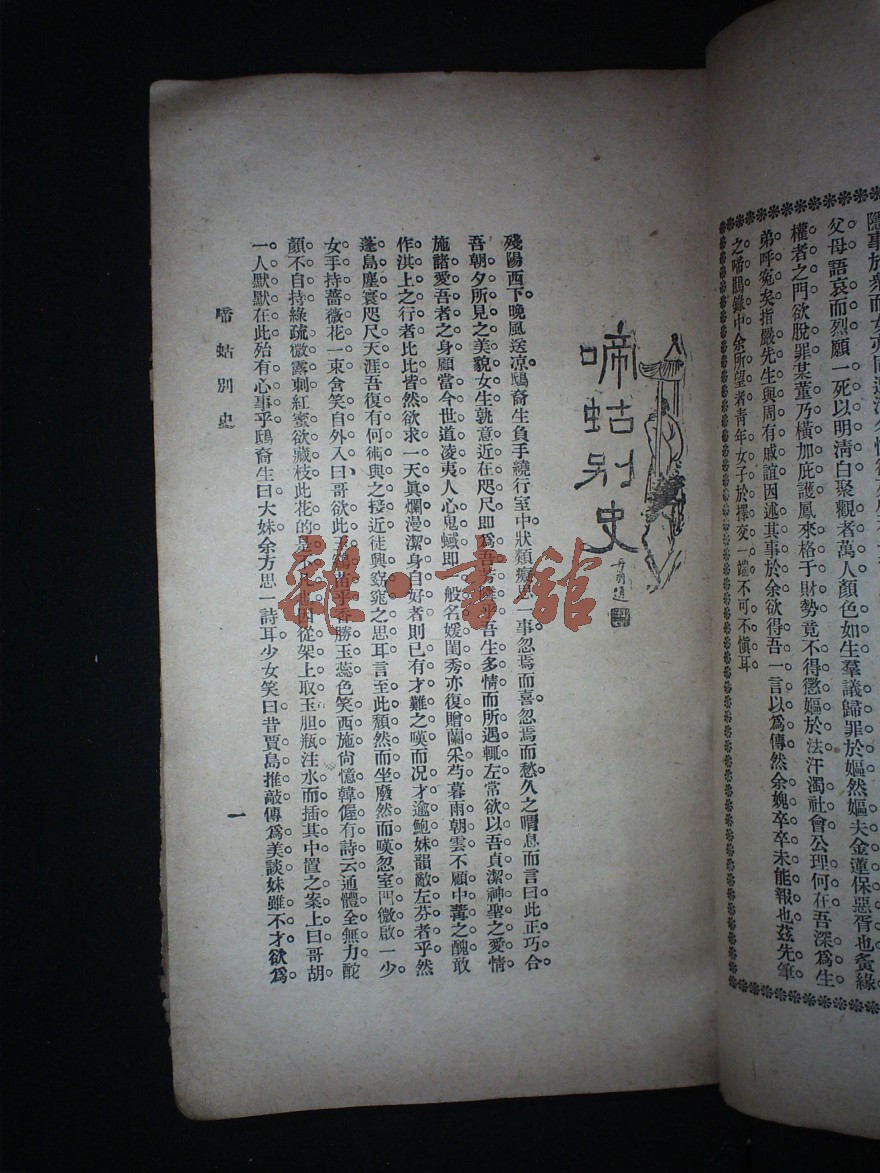 隱事於衆而女亦同
父母語哀而烈願一死以明淸白聚觀者萬人顏色如生羣議歸罪於嫗然嫗夫金蓮保惡胥也夤緣
權者之門欲脫罪某董乃橫加庇護鳳來格于財勢竟不得懲嫗於法汙濁社會公理何在吾深爲生
弟呼寃矣指嚴先生與周有戚誼因述其事於余欲得吾一言以爲傳然余媿卒卒未能報也茲先筆
之啼鵑錄中余所望者靑年女子於擇交一端不可不愼耳
啼蛄别史
殘陽西下晚風送涼鴟裔生負手繞行室中狀類癡思一事忽焉而喜忽焉而愁久之喟息而言曰此正巧合
吾朝夕所見之美貌女生孰意近在咫尺卽爲吾 吾生多情而所遇輒左常欲以吾貞潔神聖之愛情
施諸愛吾者之身顧當今世道凌夷人心鬼蜮卽一般名媛閨秀亦復贈蘭采芍暮雨朝雲不顧中冓之醜敢
作淇上之行者比比皆然欲求一天眞爛漫潔身自好者則已有才難之嘆而况才逾鮑妹韻敵左芬者乎然
蓬島塵寰咫尺天涯吾復有何術與之接近徒興窈窕之思耳言至此頹然而坐廢然而嘆忽室門微啟一少
女手持薔薇花一束含笑自外入曰哥欲此 乎香勝玉蕊色笑西施尙憶韓偓有詩云通體全無力酡
顏不自持綠疏微露刺紅蜜欲藏枝此花的是不凡 因從架上取玉胆瓶注水而插其中置之案上曰哥胡
一人默默在此殆有心事乎鴟裔生曰大妹余方思一詩耳少女笑曰昔賈島推敲傳爲美談妹雖不才欲爲
啼蛄別史
一
雜·書館